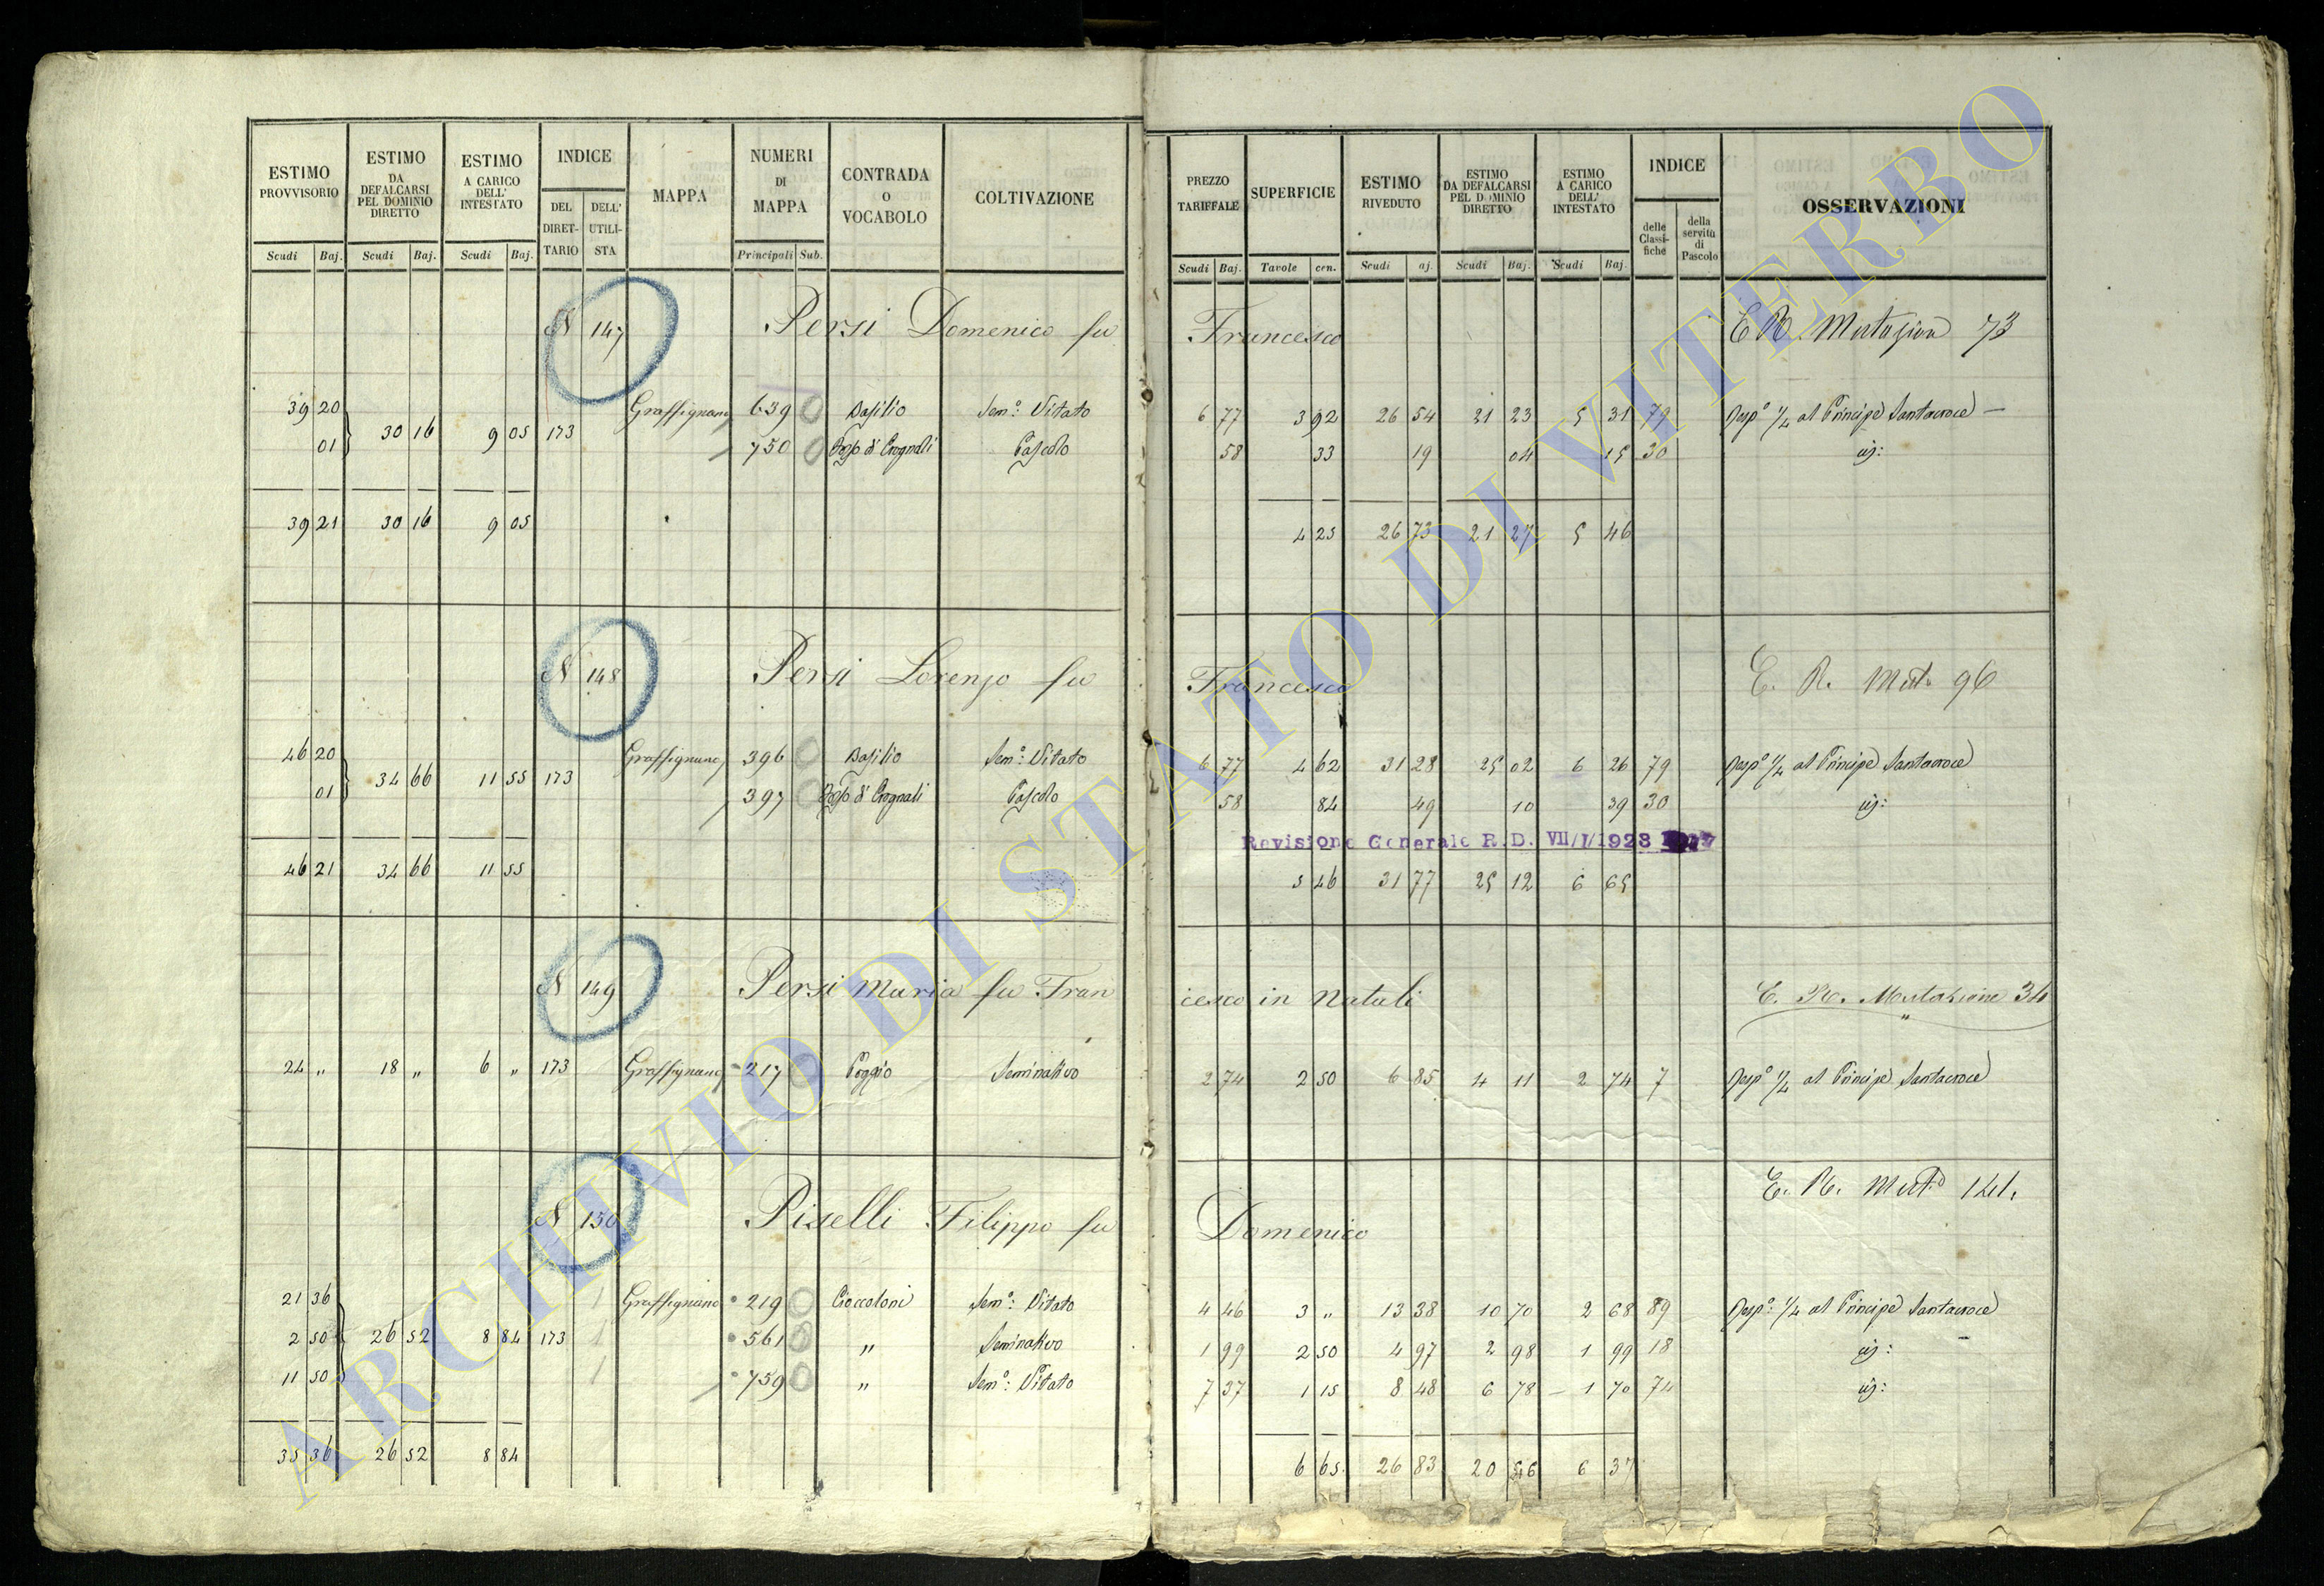 ESTIMO PROVVISORIO | ESTIMO DA DEFALCARSI PEL DOMINIO DIRETTO | ESTIMO A CARICO DELL' INTESTATO | INDICE | MAPPA | NUMERI DI MAPPA | CONTRADA o VOCABOLO | COLTIVAZIONE | PREZZO TARIFFALE | SUPERFICIE | ESTIMO RIVEDUTO | ESTIMO DA DEFALCARSI PEL DOMINIO DIRETTO | ESTIMO A CARICO DELL' INTESTATO | INDICE | OSSERVAZIONI
DEL DIRETTARIO | DELL' UTILISTA | delle Classifiche | della servitù di Pascolo
Scudi | Baj. | Scudi | Baj. | Scudi | Baj. | Principali | Sub. | Scudi | Baj. | Tavole | cen. | Scudi | aj. | Scudi | Baj. | Scudi | Baj.
N 147 Persi Domenico fu Francesco E R. Mutazion 73
39 20 Graffignano 639 0 Basilio Sem.º: Vitato 6 77 3 92 26 54 21 23 5 31 79 Risp.º 1/4 al Principe Santacroce —
01 30 16 9 05 173 750 0 di Crognali Pascolo 58 33 19 04 15 30
39 21 30 16 9 05 4 25 26 73 21 27 5 46
N 148 Persi Lorenzo fu Francesco E. R. Mut. 96
46 20 Graffignano 396 0 Basilio Sem.º: Vitato 6 77 4 62 31 28 25 02 6 26 79 Risp.º 1/4 al Principe Santacroce
01 34 66 11 55 173 397 0 di Crognali Pascolo 58 84 49 10 39 30
Revisione Generale R.D. VII/I/1923
46 21 34 66 11 55 5 46 31 77 25 12 6 65
N 149 Persi Maria fu Francesco in Natali E. R. Mutazione 34
24 " 18 " 6 " 173 Graffignano 217 0 Poggio Seminativo 2 74 2 50 6 85 4 11 2 74 7 Risp.º 1/4 al Principe Santacroce
N 150 Piselli Filippo fu Domenico E. R. Mut.º 141.
21 36 Graffignano 219 0 Cioccoloni Sem.º: Vitato 4 46 3 " 13 38 10 70 2 68 89 Risp.º: 1/4 al Principe Santacroce
2 50 26 52 8 84 173 561 0 " Seminativo 1 99 2 50 4 97 2 98 1 99 18
11 50 759 0 " Sem.º: Vitato 7 37 1 15 8 48 6 78 1 70 74
35 36 26 52 8 84 6 65 26 83 20 46 6 37
ARCHIVIO DI STATO DI VITERBO